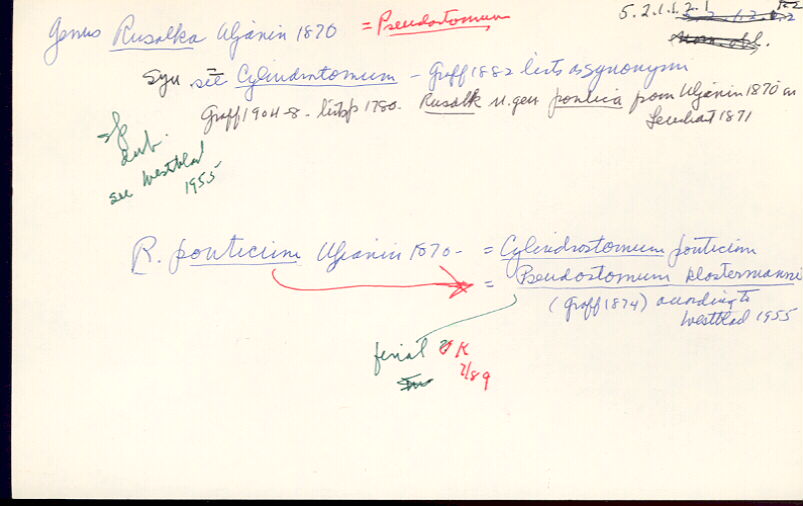 Genus Rusalka Uljanin 1870 = Pseudostomum
5.2.1.1.2.1
Syn see Cylindrostomum – Graff 1882 lists as synonym
Graff 1904-8 - lists p 1780. Rusalk n. gen pontica from Uljanin 1870 in
Leuckart 1871
sp
dub.
see Westblad
1955
R. ponticum Uljanin 1870 - = Cylindrostomum ponticum
= Pseudostomum klostermanni
(Graff 1874) according to
Westblad 1955
OK
7/89